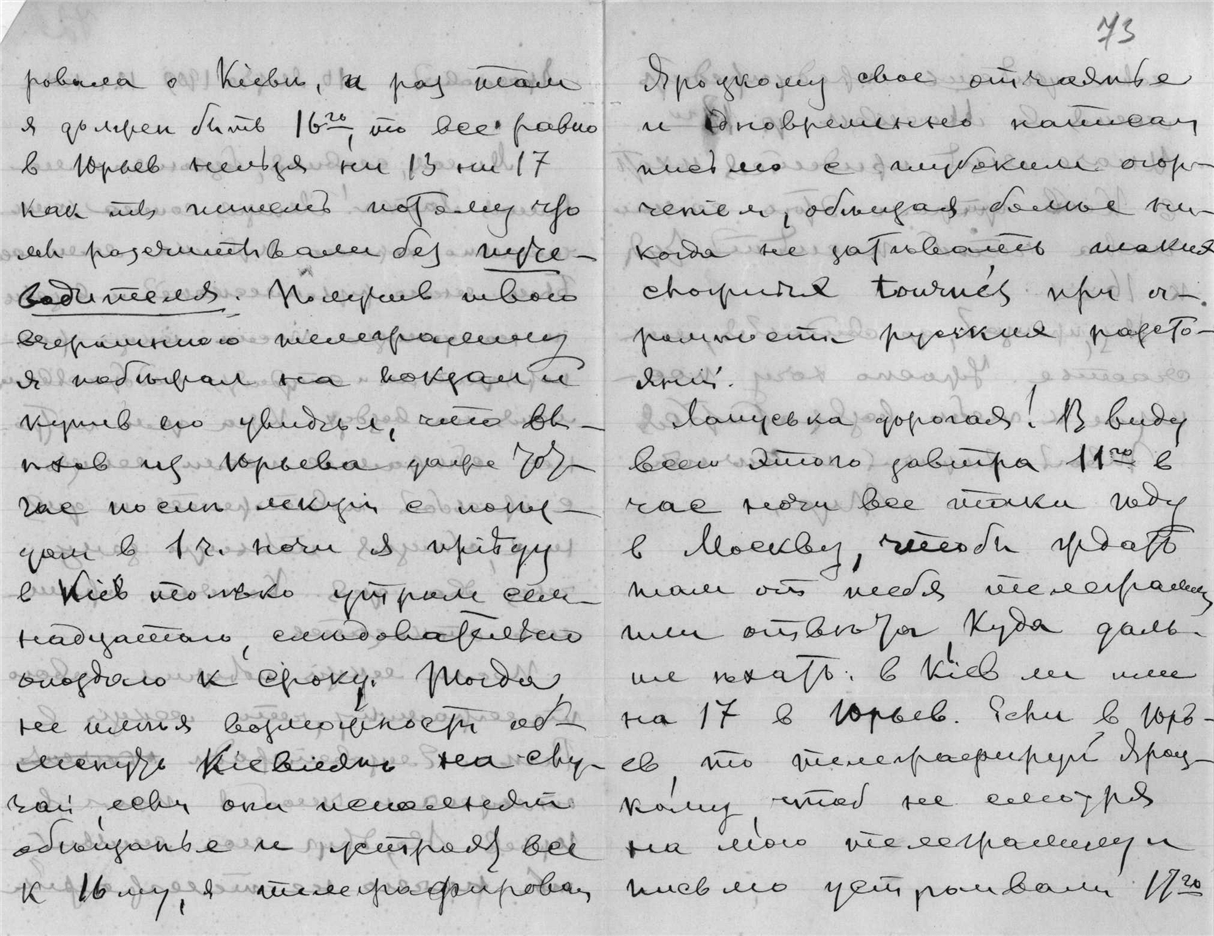 ровала о Кіеви, и раз там
я должен быть 16го, то все равно
в Юрьев нельзя ни 13 ни 17
как ты пишешь потому что
мы разсчитывали без путе-
водителя. Получив твою
вчерашнюю телеграмму
я побежал на вокзал и
купив его увидел, что вы-
ехав из Юрьева даже
час после лекции с поез-
дом в 1 ч. ночи я приеду
в Кіев только утром сем-
надцатого, следовательно
опоздаю к сроку. Тогда,
не имея возможности об-
мануть Кіевлян на слу-
чай, если они исполнят
обещанье и устроят все
к 16му, я телеграфировал
73
Яроцкому свое отчаянье
и одновременно написал
письмо с глубоким огор-
ченьем, обещая больше ни-
когда не затевать таких
сложных tournés при о-
ромности русских разсто-
яний.
Лапуська дорогая! В виду
всего этого завтра 11го в
час ночи все таки еду
в Москву, чтобы ждать
там от тебя телеграммы
или ответа, куда даль-
ше ехать: в Кіев ли или
на 17 в Юрьев. Если в Юрь-
ев, то телеграфируй Яроц-
кому, чтоб не смотря
на мою телеграмму и
письмо устраивали 17го